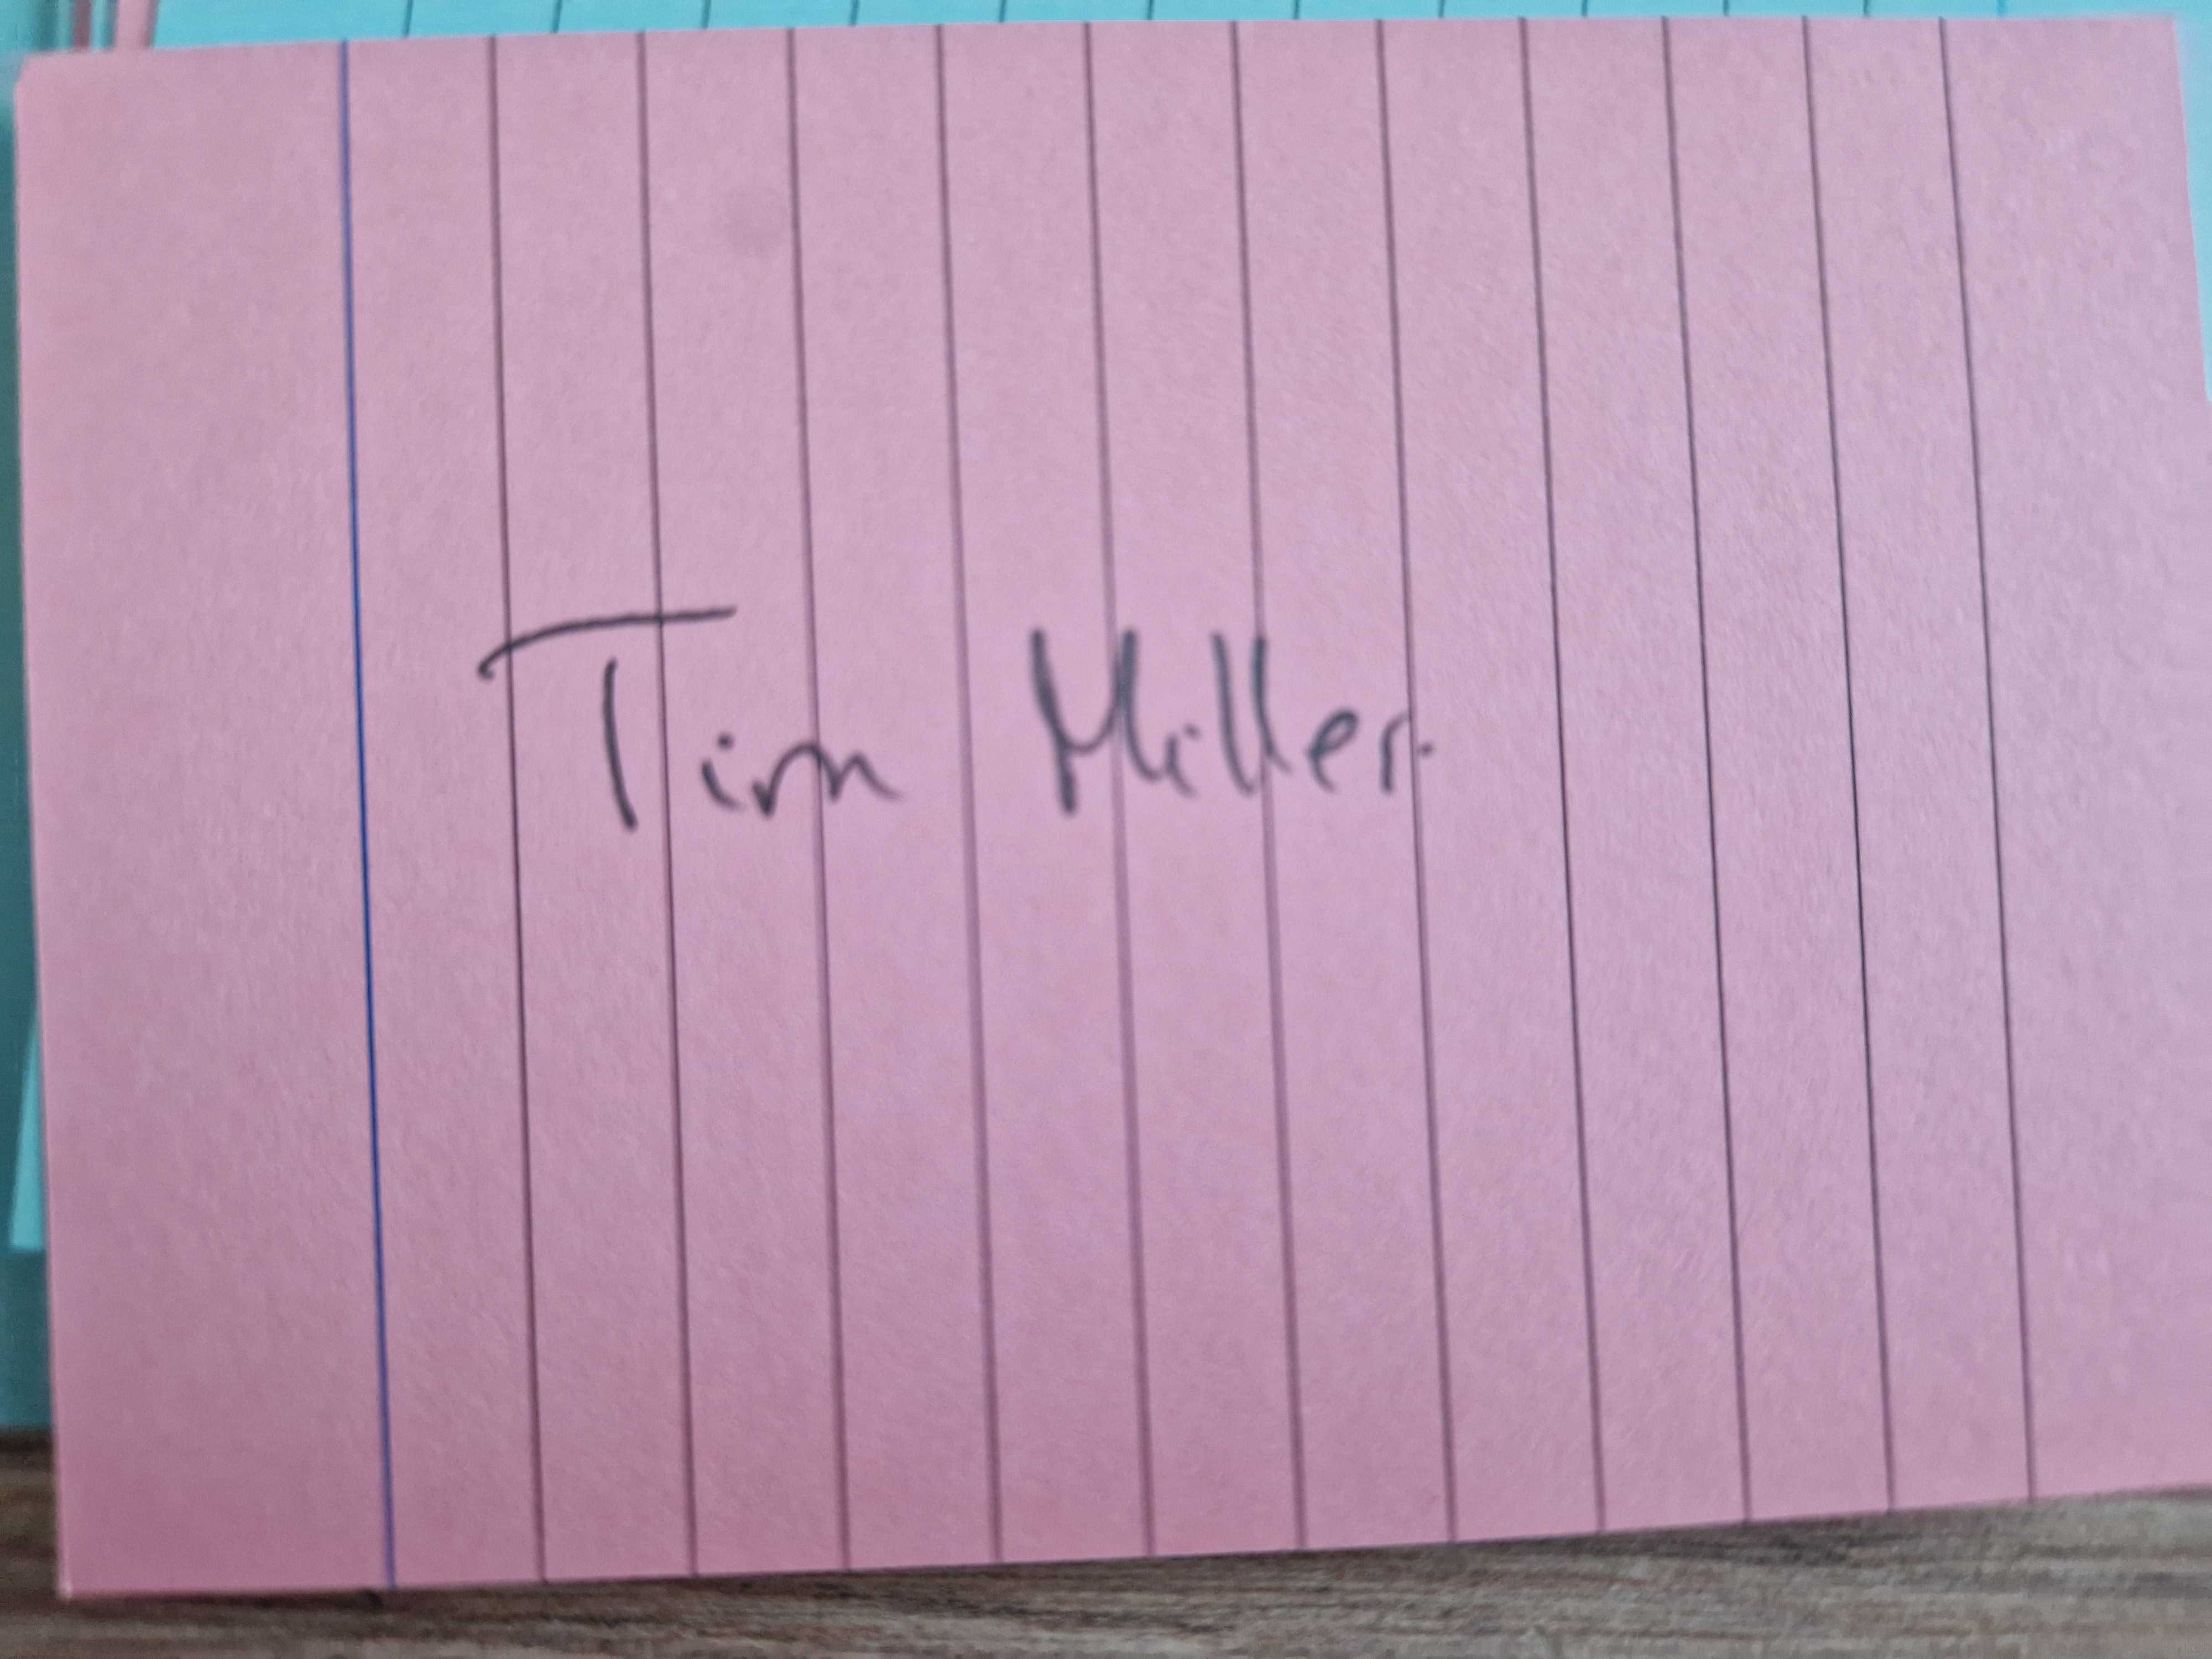 Tim Miller.